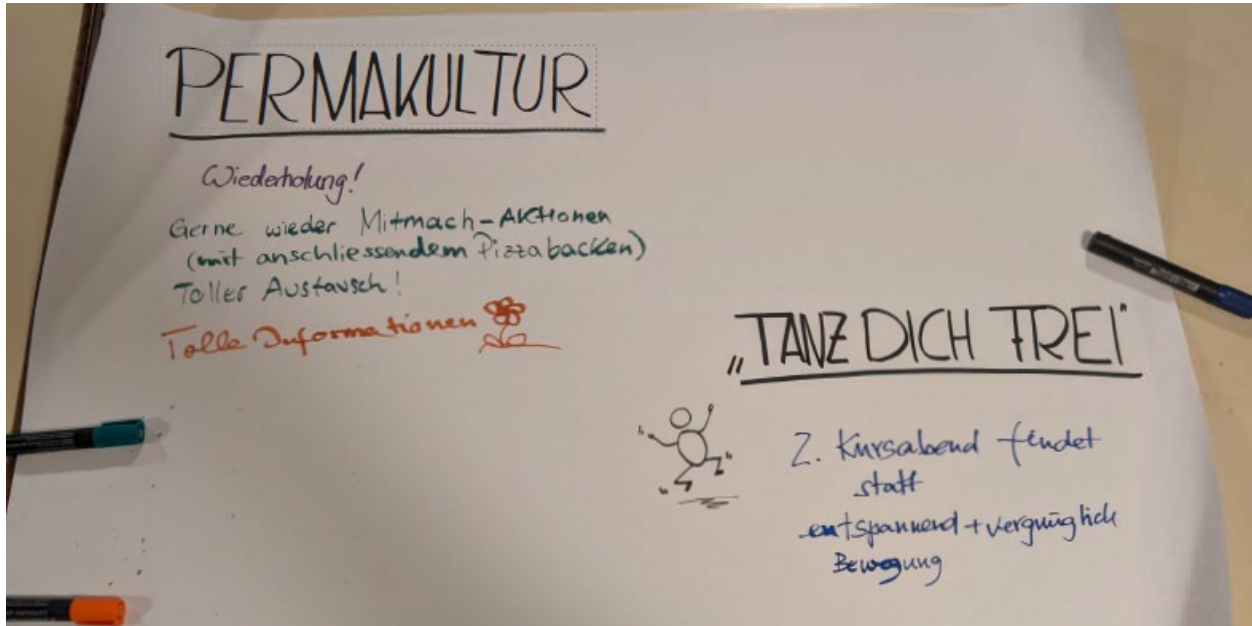 PERMAKULTUR
Wiederholung!
Gerne wieder Mitmach-Aktionen
(mit anschliessendem Pizzabacken)
Toller Austausch!
Tolle Informationen
„TANZ DICH FREI"
2. Kursabend findet
statt
entspannend + vergnüglich
Bewegung